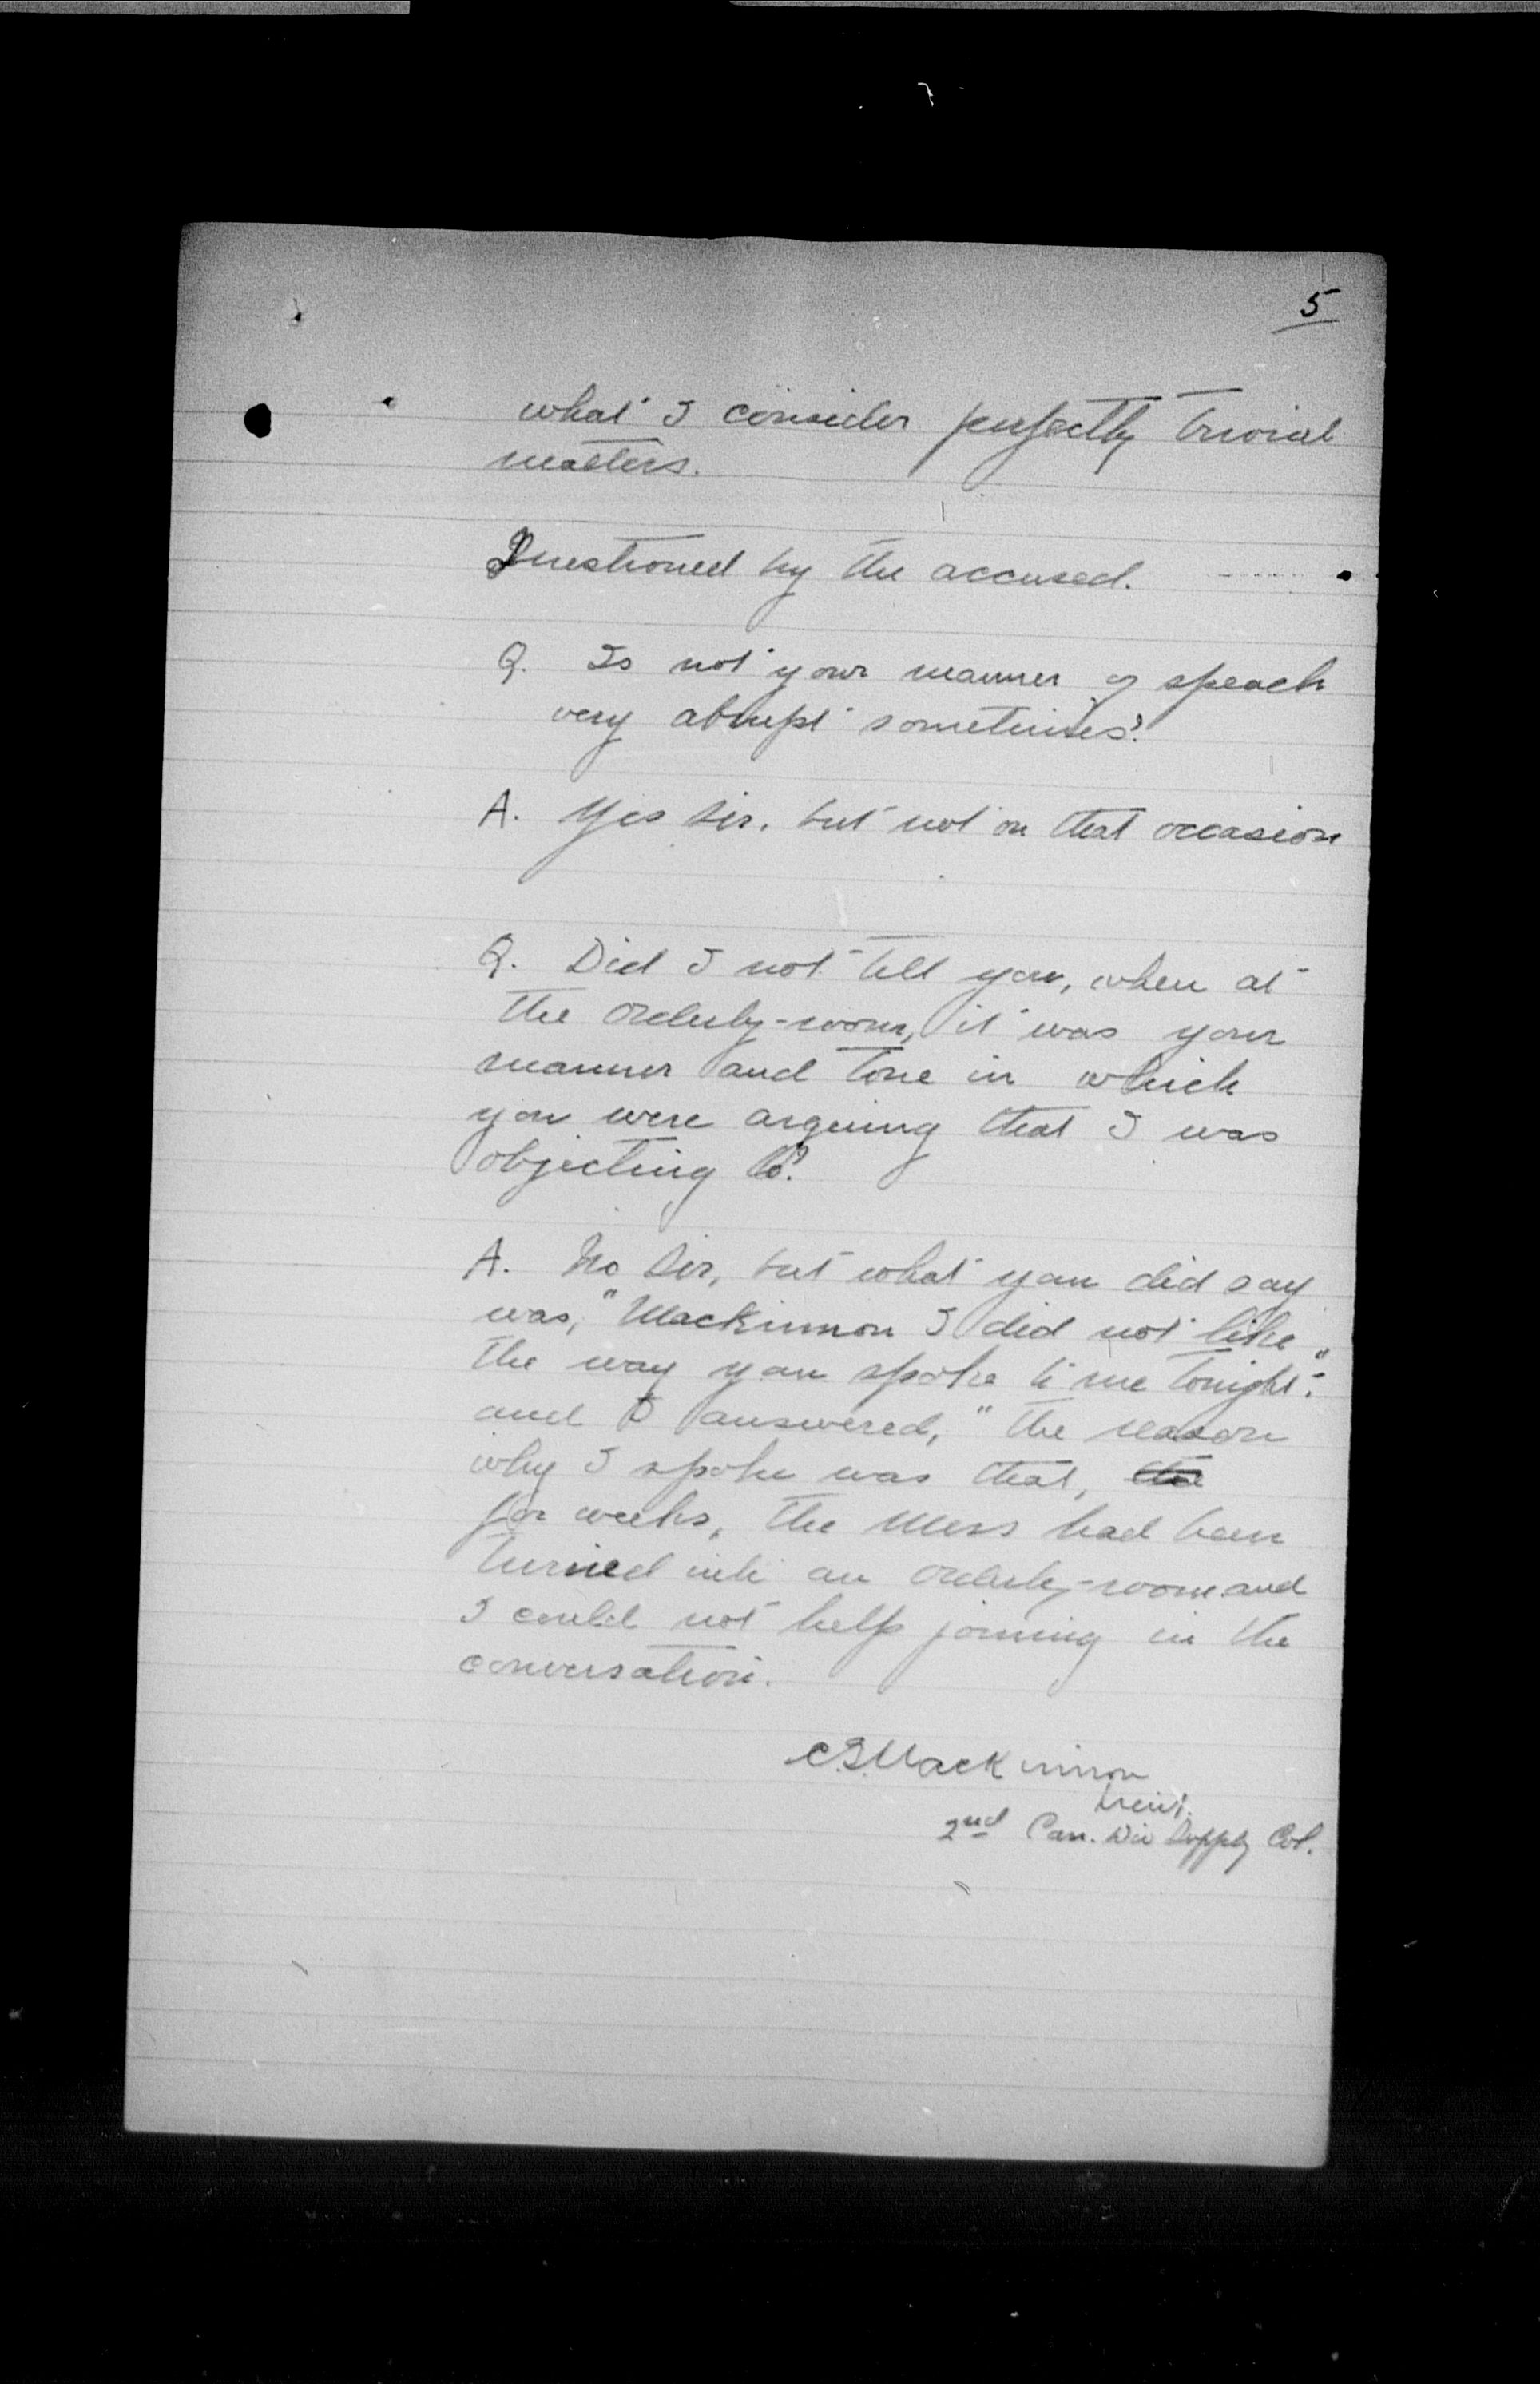 5
what I consider perfectly trivial
matters.
Questioned by the accused.
Q. Is not your manner of speach
very abrupt sometimes?
A. Yes Sir, but not on that occasion
Q. Did I not tell you, when at
the Orderly-room, it was your
manner and tone in which
you were arguing that I was
objecting to?
A. No Sir, but what you did say
was, "Mackinnon I did not like
the way you spoke to me tonight."
and I answered, "the reason
why I spoke was that, the
for weeks, the Mess had been
turned into an orderly-room and
I could not help joining in the
conversation.
C.S. Mackinnon
Lieut.
2nd Can. Div Supply Col.